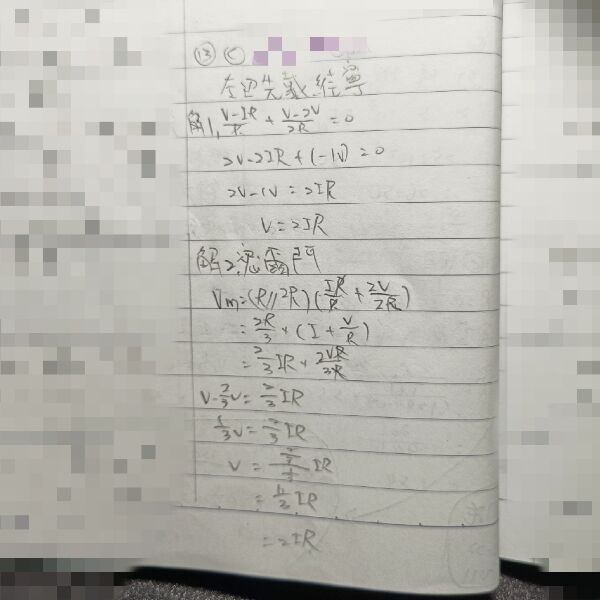 ⑬ C
左边先戴維寧
解1, \frac{V-IR}{R} + \frac{V-2V}{2R} = 0
2V-2IR+(-1V) = 0
2V-1V = 2IR
V = 2IR
解2. 密爾門
Vm = (R//2R)(\frac{IR}{R} + \frac{2V}{2R})
= \frac{2R}{3} × (I + \frac{V}{R})
= \frac{2}{3}IR + \frac{2VR}{3R}
V-\frac{2}{3}V = \frac{2}{3}IR
\frac{1}{3}V = \frac{2}{3}IR
V = \frac{\frac{2}{3}}{\frac{1}{3}}IR
IR
= 2IR